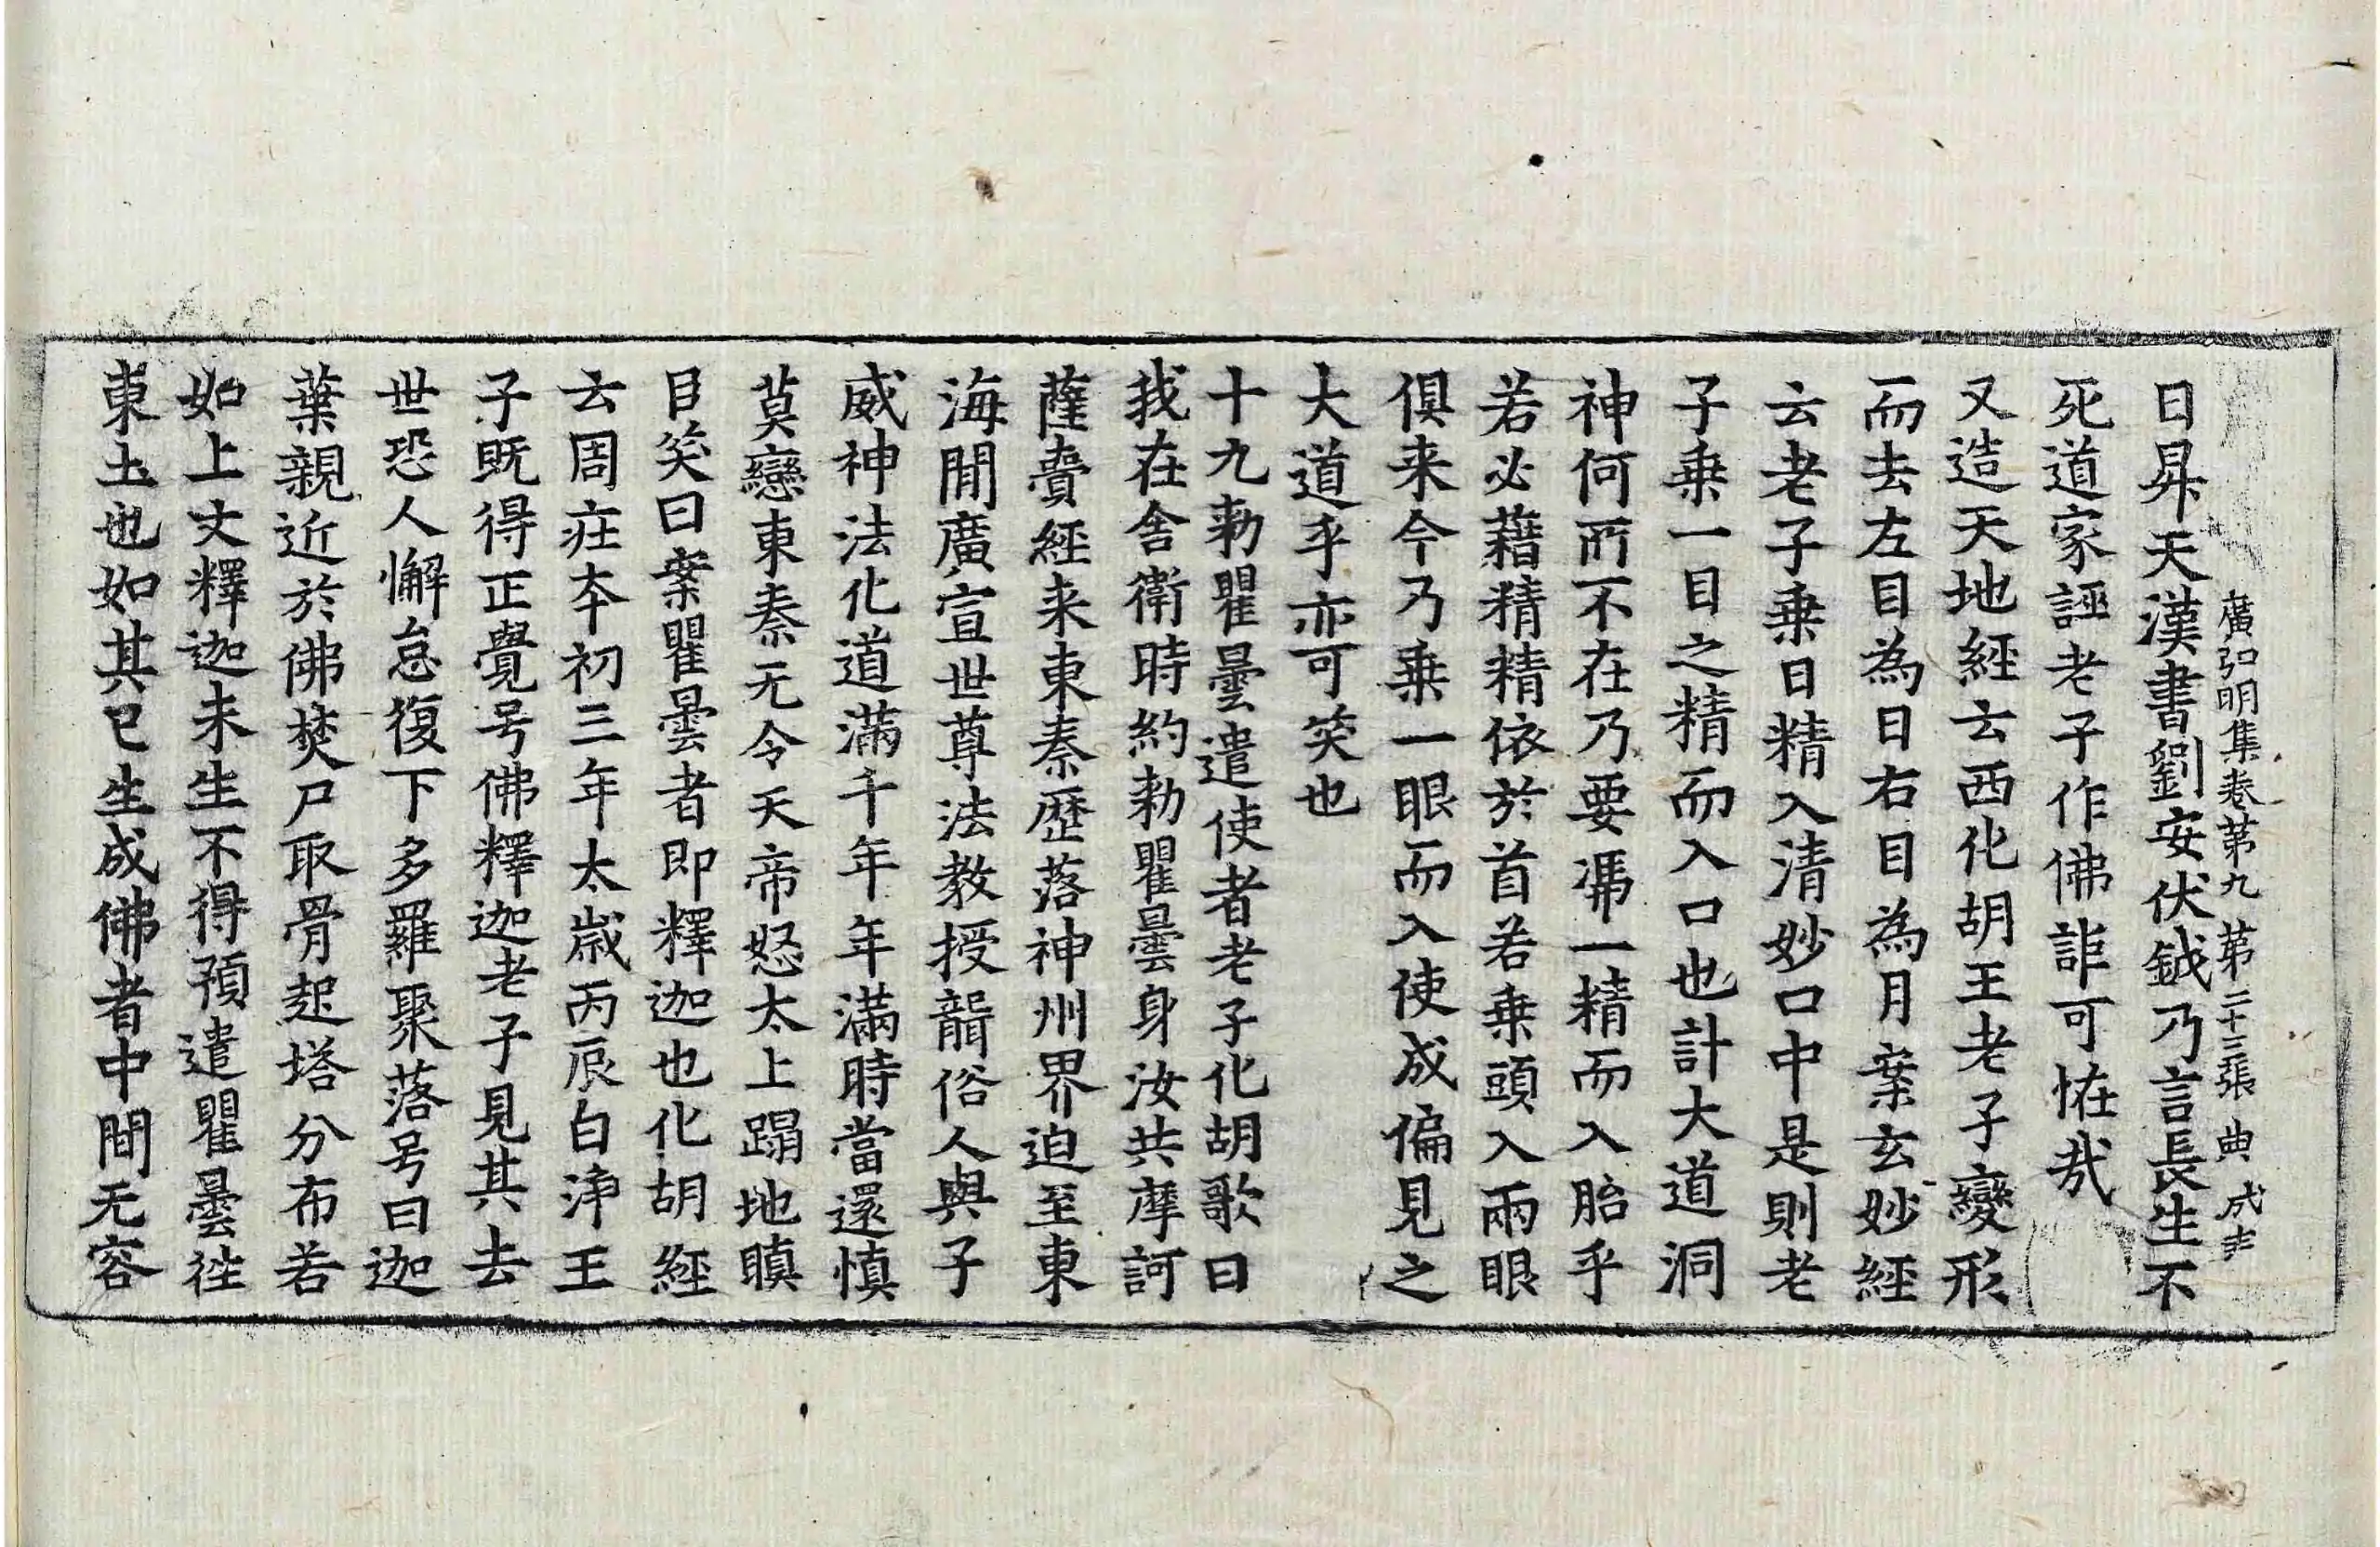 廣弘明集卷第九 第二十三張 典 成吉
日昇天漢書劉安伏鉞乃言長生不
死道家誣老子作佛詎可恠㢤
又造天地經云西化胡王老子變形
而去左目為日右目為月案玄妙經
云老子乗日精入清妙口中是則老
子乗一目之精而入口也計大道洞
神何所不在乃要馮一精而入胎乎
若必藉精精依於首若乗頭入兩眼
俱来今乃乗一眼而入使成偏見之
大道乎亦可笑也
十九勑瞿曇遣使者老子化胡歌曰
我在舎衛時約勑瞿曇身汝共摩訶
薩賷經来東秦歴落神州界迫至東
海間廣宣世尊法教授聾俗人與子
威神法化道滿千年年滿時當還慎
莫戀東秦无令天帝怒太上蹋地瞋
目笑曰案瞿曇者即釋迦也化胡經
云周莊夲初三年太歳丙辰白浄王
子既得正覺号佛釋迦老子見其去
世恐人懈怠復下多羅聚落号曰迦
葉親近於佛焚尸取骨起塔分布若
如上文釋迦未生不得預遣瞿曇徃
東土也如其已生成佛者中間无容